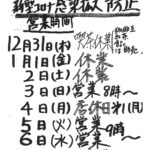 新型コロナ感染拡大防止
営業時間
12月31日(木) 喫茶休業
1月1日(金) 休業
2日(土) 休業
3日(日) 営業8時〜
4日(月) 店休日
5日(火) 営業
6日(水) 9時〜